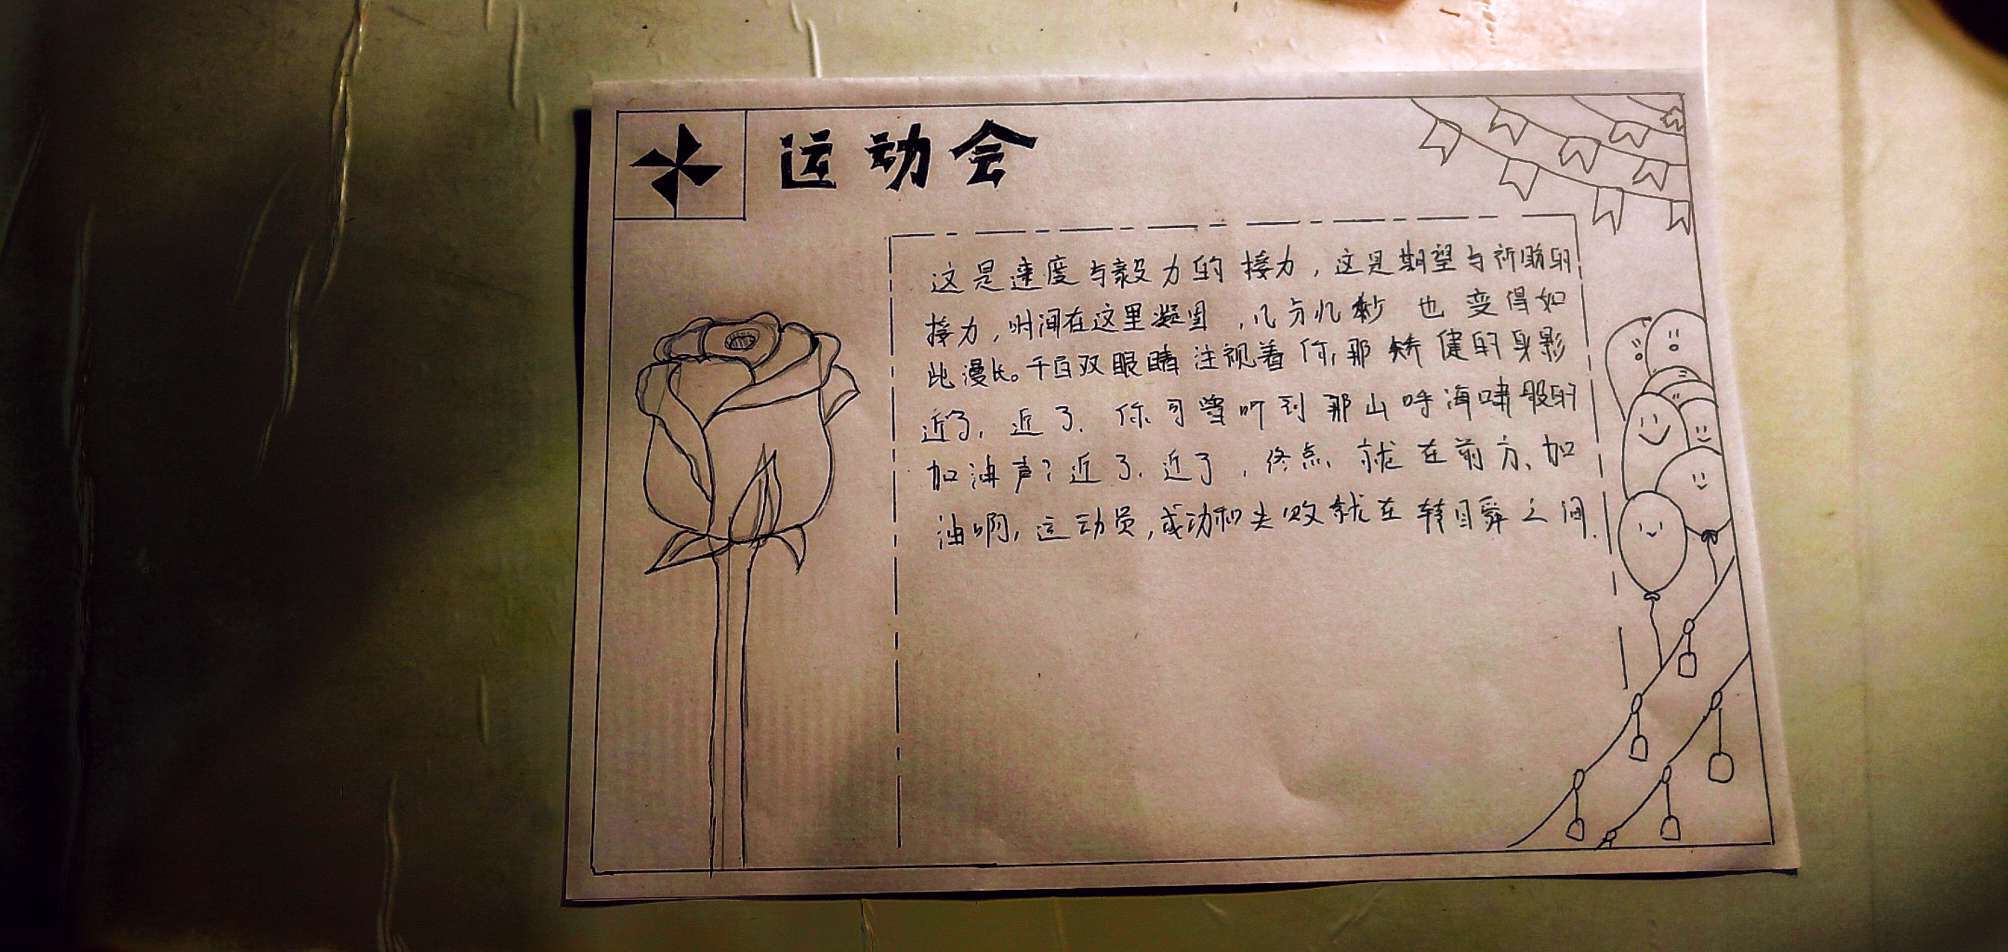 运动会
这是速度与毅力的接力，这是期望与祈盼的
接力，时间在这里凝固，几分几秒也变得如
此漫长。千百双眼睛注视着你，那矫健的身影
近了，近了，你可曾听到那山呼海啸般的
加油声？近了，近了，终点，就在前方、加
油啊，运动员，成功和失败就在转目瞬之间.